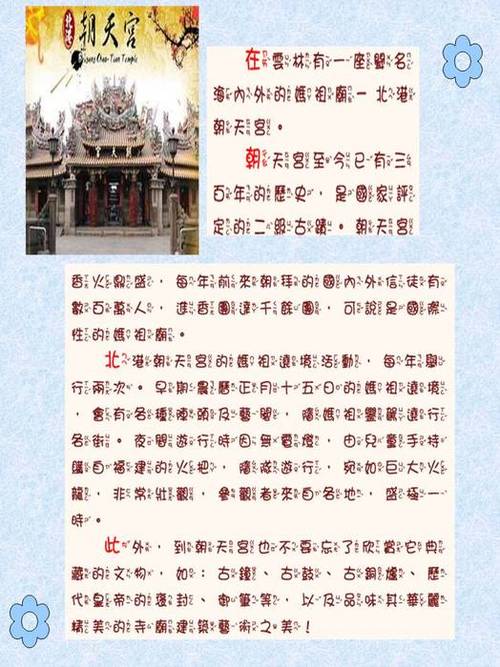 北港
朝天宮
Beigang Chao-Tian Temple
在雲林有一座聞名
海內外的媽祖廟－北港
朝天宮。
朝天宮至今已有三
百年的歷史，是國家評
定的二級古蹟。朝天宮
香火鼎盛，每年前來朝拜的國內外信徒有
數百萬人，進香團達千餘團，可說是國際
性的媽祖廟。
北港朝天宮的媽祖遶境活動，每年舉
行兩次。早期農歷正月十五日的媽祖遶境
，會有各種陣頭及藝閣，隨媽祖鑾駕遶行
各街。夜間遊行時因無電燈，由兒童手持
購自福建的火把，隨隊遊行，宛如巨大火
龍，非常壯觀，參觀者來自各地，盛極一
時。
此外，到朝天宮也不要忘了欣賞它典
藏的文物，如：古鐘、古鼓、古銅爐、歷
代皇帝的褒封、御筆等，以及品味其華麗
精美的寺廟建築藝術之美！